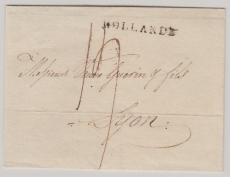 HOLLANDE
Messieurs Guerin & fils
Lyon.